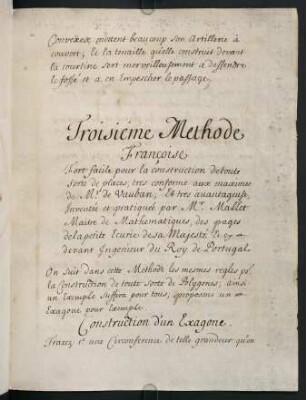 Convexes mettent beaucoup son Artillerie à
couvert, & la tenaille qu'elle construit devant
la courtine sert merveilleusement à deffendre
le fossé et a en Empescher le passage.
Troisiéme Methode
Françoise
Fort facile pour la construction de toute
sorte de places, tres conforme aux maximes
de Mr. de Vauban, Et tres avantageuse
Inventée et pratiquée par Mr. Mallet
Maitre de Mathematiques, des pages
de la petite Ecurie de sa Majesté Et cy
devant Ingenieur du Roy de Portugal
On Suit dans cette Methode les mesmes regles pr.
la Construction de toute Sorte de Polygones; ainsi
un Exemple Suffira pour tous, proposons un
Exagone pour Exemple.
Construction d'un Exagone.
Tracez 1o une Circonference de telle grandeur qu'on